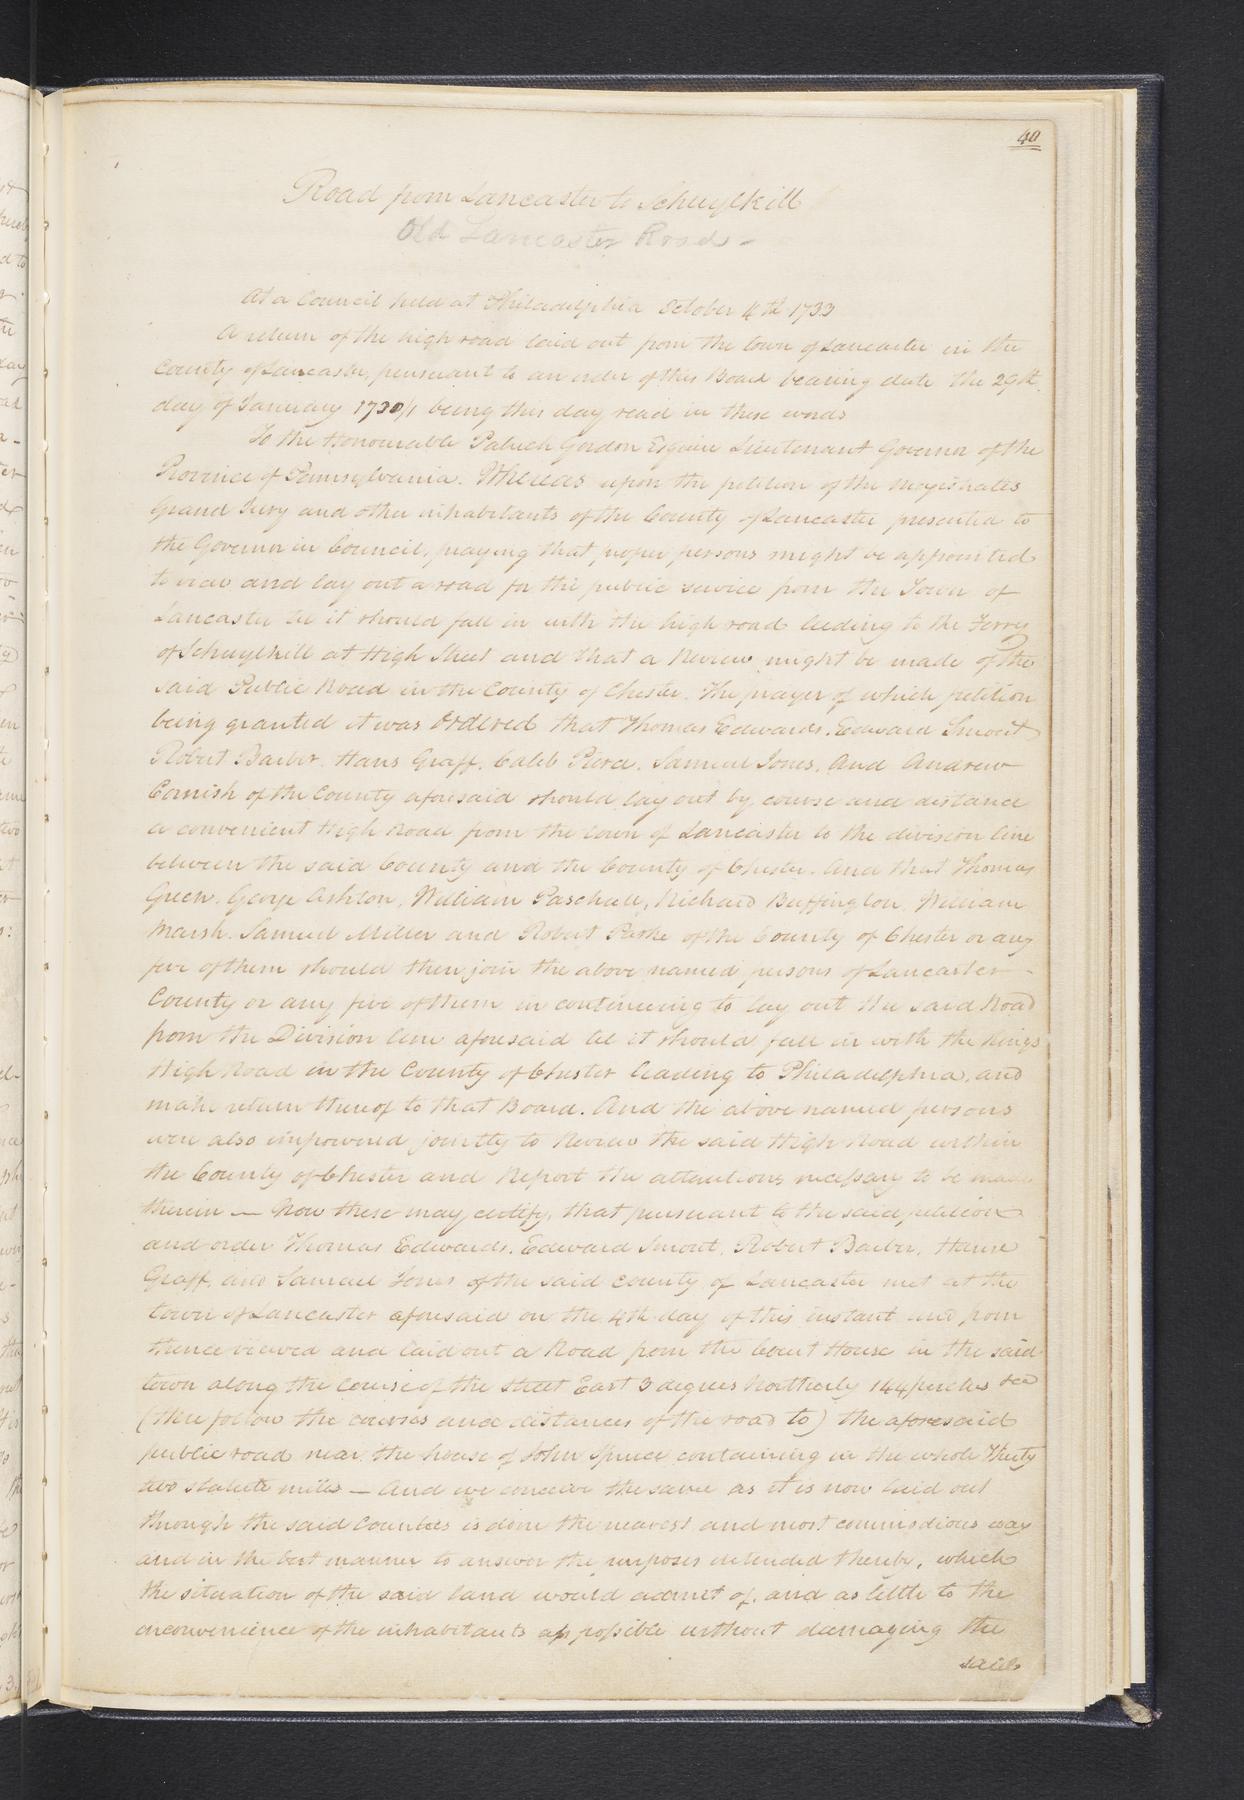 40
Road from Lancaster to Schuylkill
Old Lancaster Road -
At a Council held at Philadelphia October 4th 1733
A return of the high road laid out from the town of Lancaster in the
County of Lancaster, pursuant to an order of this Board bearing date the 29th.
day of January 1730/1 being this day read in these words
To the Honourable Patrick Gordon Esquire Lieutenant Governor of the
Province of Pennsylvania. Whereas upon the petition of the Magistrates
Grand Jury and other inhabitants of the County of Lancaster presented to
the Governor in Council, praying that proper persons might be appointed
to view and lay out a road for the public service from the Town of
Lancaster til it should fall in with the high road leeding to the Ferry
of Schuylkill at High Street and that a Review might be made of the
said Public Road in the County of Chester. The prayer of which petition
being granted it was Ordered that Thomas Edwards. Edward Smout
Robert Barber. Hans Graff. Caleb Pierce. Samuel Jones. And Andrew
Cornish of the County aforesaid should lay out by course and distance
a convenient High Road from the town of Lancaster to the division line
between the said County and the County of Chester. And that Thomas
Green. George Ashton. William Paschall, Richard Buffington. William
Marsh. Samuel Miller and Robert Parke of the County of Chester or any
five of them should then join the above named persons of Lancaster -
County or any five of them in continueing to lay out the said Road
from the Division line aforesaid til it should fall in with the Kings
High Road in the County of Chester leading to Philadelphia, and
make return thereof to that Board. And the above named persons
were also impowered jointly to Review the said High Road within
the County of Chester and Report the alterations necessary to be made
therein — Now these may certify, that pursuant to the said petition
and order Thomas Edwards. Edward Smout. Robert Barber. Hanse
Graff. and Samuel Jones of the said County of Lancaster met at the
town of Lancaster aforesaid on the 4th day of this instant and from
thence viewed and laid out a Road from the Court House in the said
town along the Course of the street East 3 degrees Northerly 144 perches &ca
(then follow the courses and distances of the road to) the aforesaid
public road near the house of John Spruce containing in the whole Thirty
two statute miles — And we conceive the same as it is now laid out
through the said Counties is done the nearest and most commodious way
and in the best manner to answer the purposes intended thereby, which
the situation of the said land would admit of. and as little to the
inconvenience of the inhabitants as possible without damaging the
said